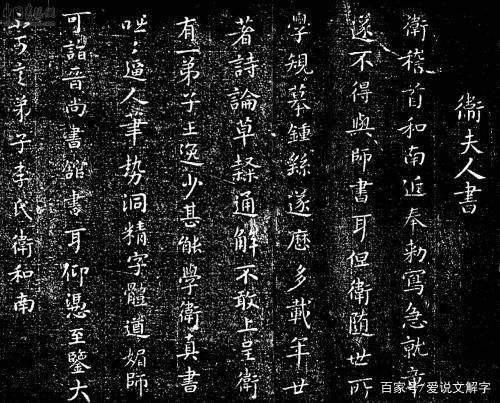 衛夫人書
衛稽首和南近奉勅寫急就章
遂不得與師書耳但衛随世所
學規摹鍾繇遂歷多載年廿
著詩論草隸通解不敢上呈衛
有一弟子王逸少甚能學衛真書
咄〻逼人筆势洞精字體遒媚師
可詣晉尚書館書耳仰憑至鑒大
不可言弟子李氏衛和南
百家号/爱说文解字